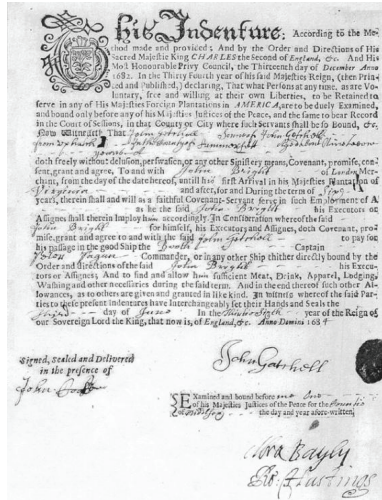 This Indenture: According to the Me-
thod made and provided; And by the Order and Directions of His
Sacred Majestie King CHARLES the Second of England, &c. And His
Most Honourable Privy Council, the Thirteenth day of December Anno
1682. In the Thirty Fourth year of his said Majesties Reign, (then Prin-
ted and Published,) declaring, That what Persons at any time, as are Vo-
luntary, free and willing, at their own Liberties, to be Retained to
serve in any of His Majesties Foreign Plantations in AMERICA, are to be duely Examined,
and bound only before any of his Majesties Justices of the Peace, and the same to bear Record
in the Court of Sessions, in that County or City where such Servants shall be so Bound, &c.
Now Witnesseth That John Gotchell Sonn of John Gotchell
doth freely without delusion, perswasion, or any other Sinistery means, Covenant, promise, con-
sent, grant and agree, To and with John Bright of London Mer-
chant, from the day of the date hereof, until his first Arrival in His Majesties Plantation of
Virginia and after, for and During the term of
years, therein shall and will as a faithful Covenant-Servant serve in such Employment of A
as he the said John Bright his Executors or
Assignes shall therein Imploy him accordingly. In Consideration whereof the said
John Bright for himself, his Executors and Assignes, doth Covenant, pro-
mise, grant and agree to and with the said John Gotchell to pay for
his passage in the good Ship the Captain
Commander, or in any other Ship thither directly bound by the
Order and directions of the said John Bright his Execu-
tors or Assignes, And to find and allow him sufficient Meat, Drink, Apparel, Lodging,
Washing and other necessaries during the said term. And in the end thereof such other Al-
lowances, as to others are given and granted in like kind. In witness whereof the said Par-
ties to these present Indentures have Interchangably set their Hands and Seals the
day of June In the Thirty Sixth year of the Reign of
our Sovereign Lord the King, that now is, of England, &c. Anno Domini 1684
Signed, Sealed and Delivered
in the presence of
John
John Gotchell
Examined and bound before me one
of his Majesties Justices of the Peace for the
the day and year afore-written.
Bayly
Hustings